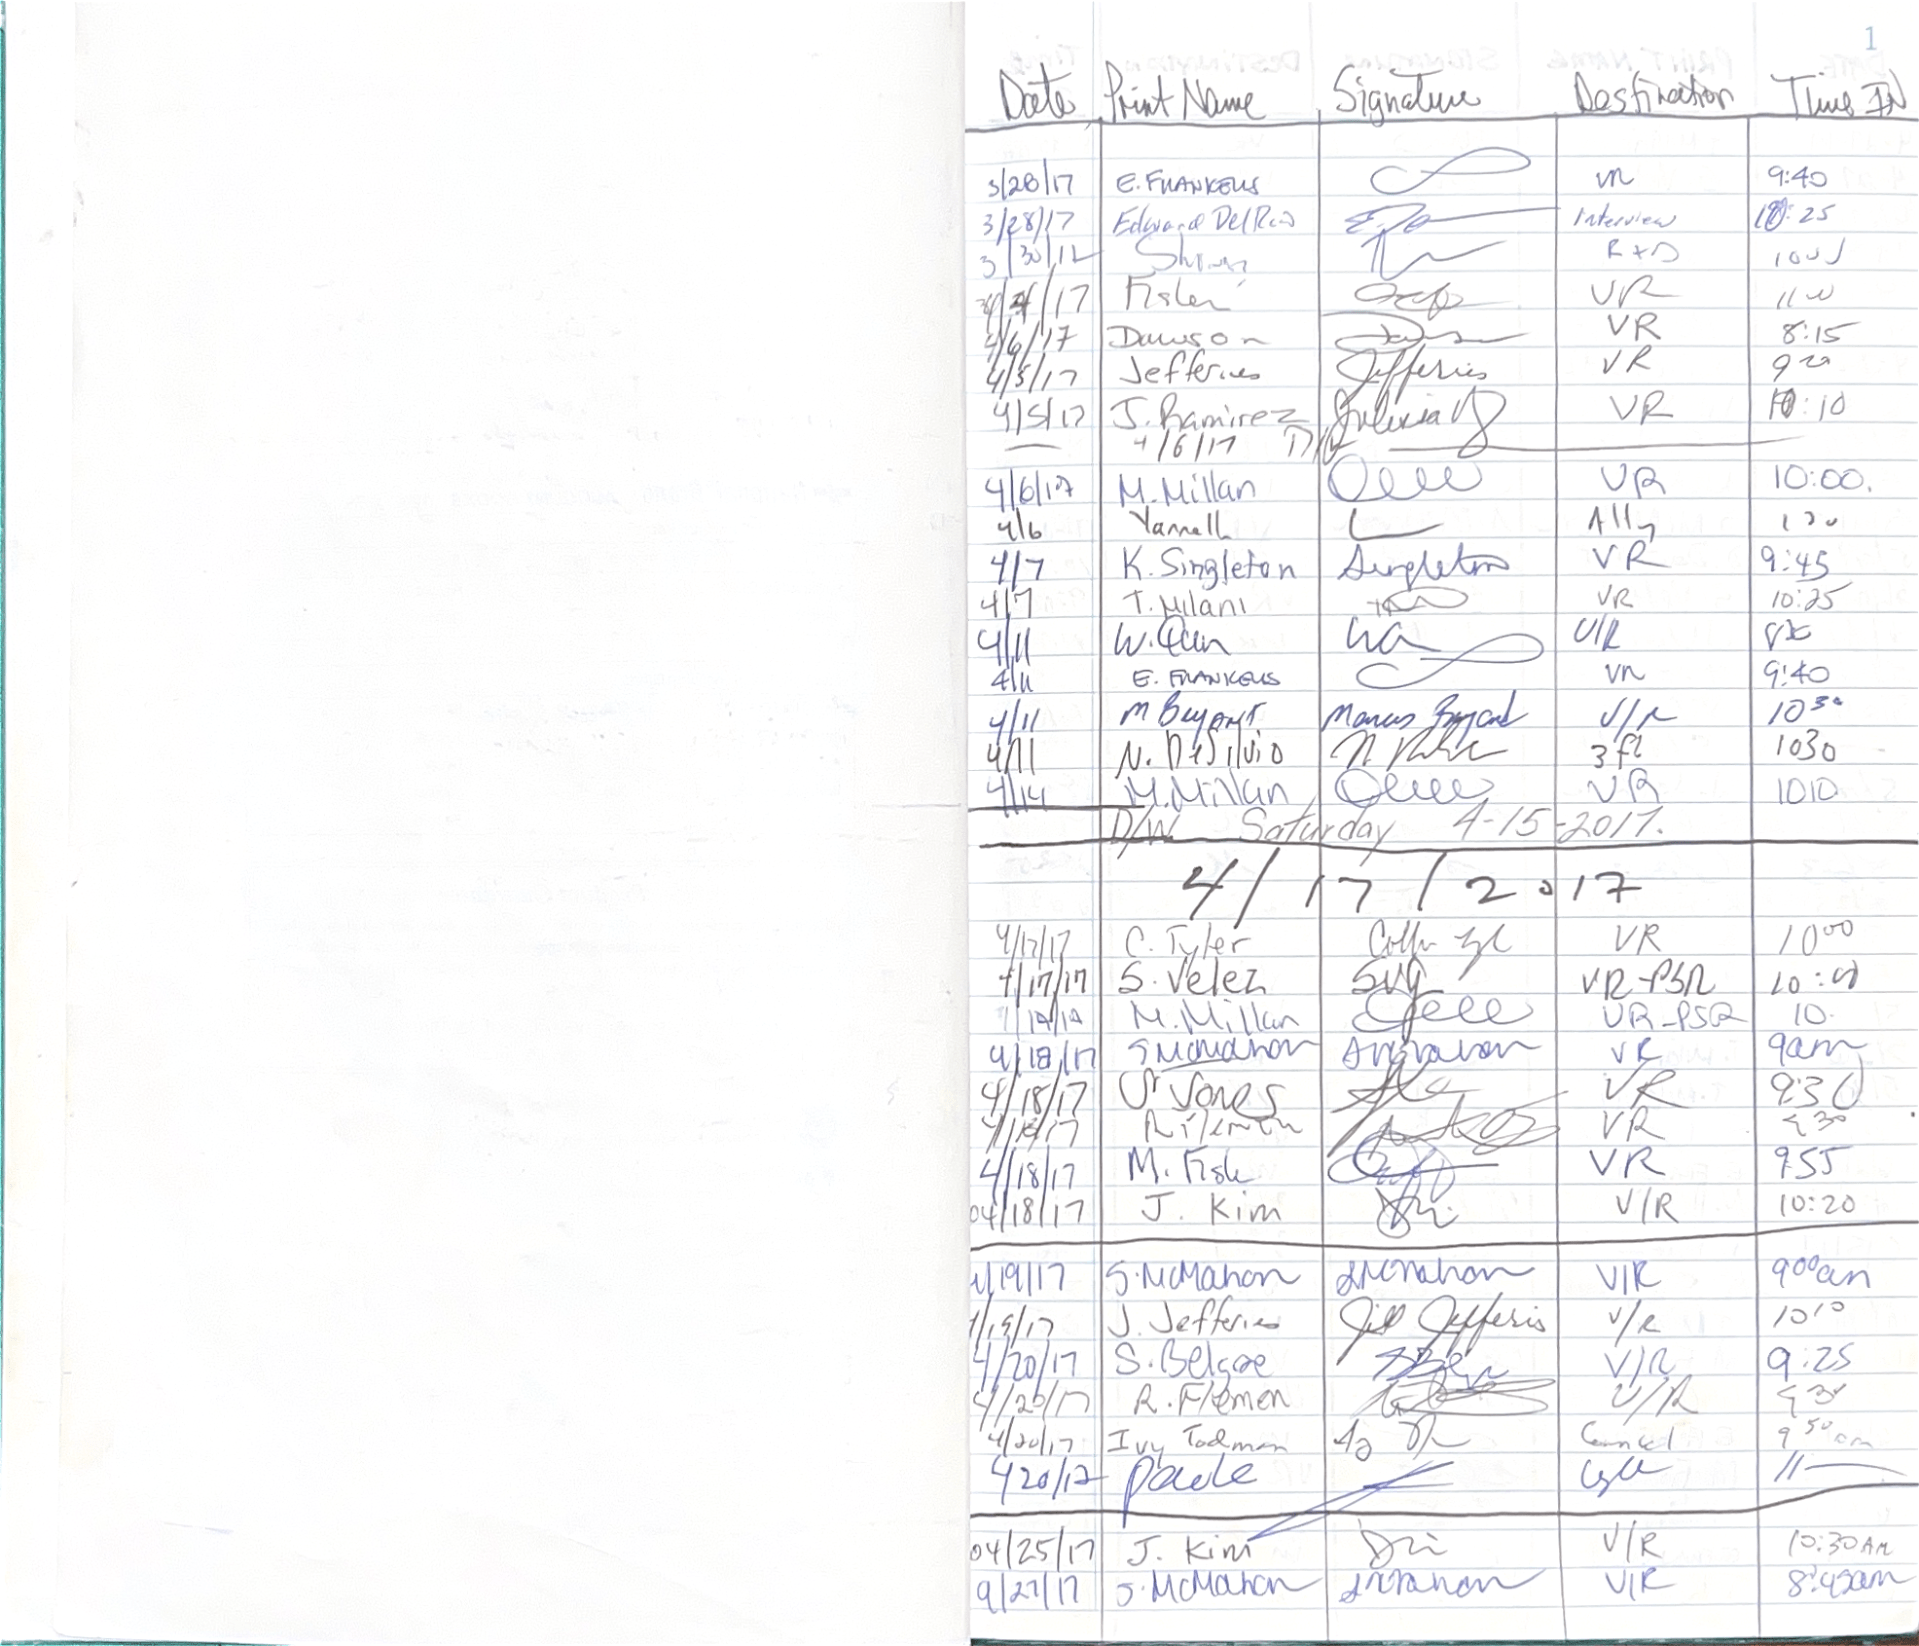 1
Date Print Name Signature Destination Time IN
3/28/17 E. FRANKELIS VR 9:40
3/28/17 Edward DelRio Interview 10:25
3/30/17 R+D
/17 Fisler VR 1100
4/6/17 Dawson VR 8:15
4/5/17 Jefferies Jefferies VR 920
4/5/17 J. Ramirez VR 10:10
4/6/17 D/W
4/6/17 M. Millan VR 10:00.
4/6 Yarnell Ally 130
4/7 K. Singleton Singleton VR 9:45
4/7 T. Milani VR 10:25
4/11 W. V/R
4/11 E. FRANKELIS VR 9:40
4/11 M Bryant Marcus Bryant V/R 1030
4/11 N. DeSilvio 3 fl 1030
4/14 M. Millan VR 1010
D/W Saturday 4-15-2017.
4/17/2017
4/17/17 C. Tyler VR 1000
4/17/17 S. Velez SVG VR-PSR 10:00
M. Millan VR-PSR 10
4/18/17 S McMahon SMcMahon VR 9am
4/18/17 Jones VR 930
4/18/17 VR 930
4/18/17 M. Fisk VR 955
04/18/17 J. Kim V/R 10:20
4/19/17 S. McMahon SMcMahon V/R 900am
4/19/17 J. Jefferies Jill Jefferies V/R 1010
4/20/17 S. Belgoe V/R 9:25
4/20/17 R. Flemen V/R 930
4/20/17 Ivy Todman 950am
4/20/17 11
04/25/17 J. Kim V/R 10:30AM
9/27/17 S. McMahon SMcMahon V/R 8:45am